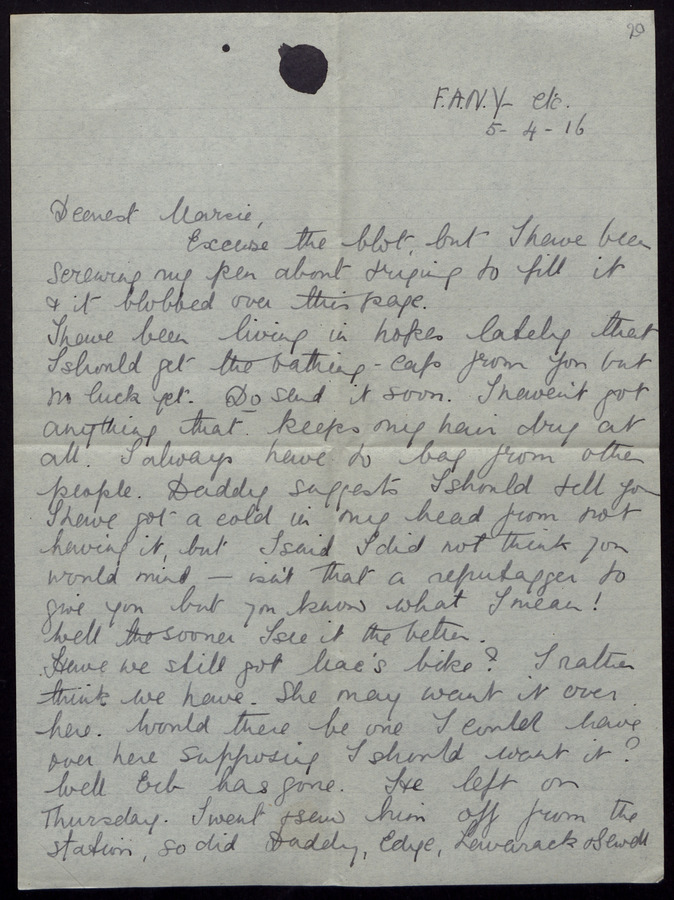 20
F.A.N.Y. etc.
5-4-16
Dearest Marsie,
Excuse the blot, but I have been
screwing my pen about trying to fill it
& it blobbed over this page.
I have been living in hopes lately that
I should get the bathing-cap from you but
no luck yet. Do send it soon. I haven't got
anything that keeps my hair dry at
all. I always have to bag from other
people. Daddy suggests I should tell you
I have got a cold in my head from not
having it, but I said I did not think you
would mind — isn't that a to
give you but you know what I mean!
Well the sooner I see it the better.
Have we still got Mac's bike? I rather
think we have. She may want it over
here. Would there be one I could have
over here supposing I should want it?
Well Erb has gone. He left on
Thursday. I went & saw him off from the
station, so did Daddy, Edge, & Sewell